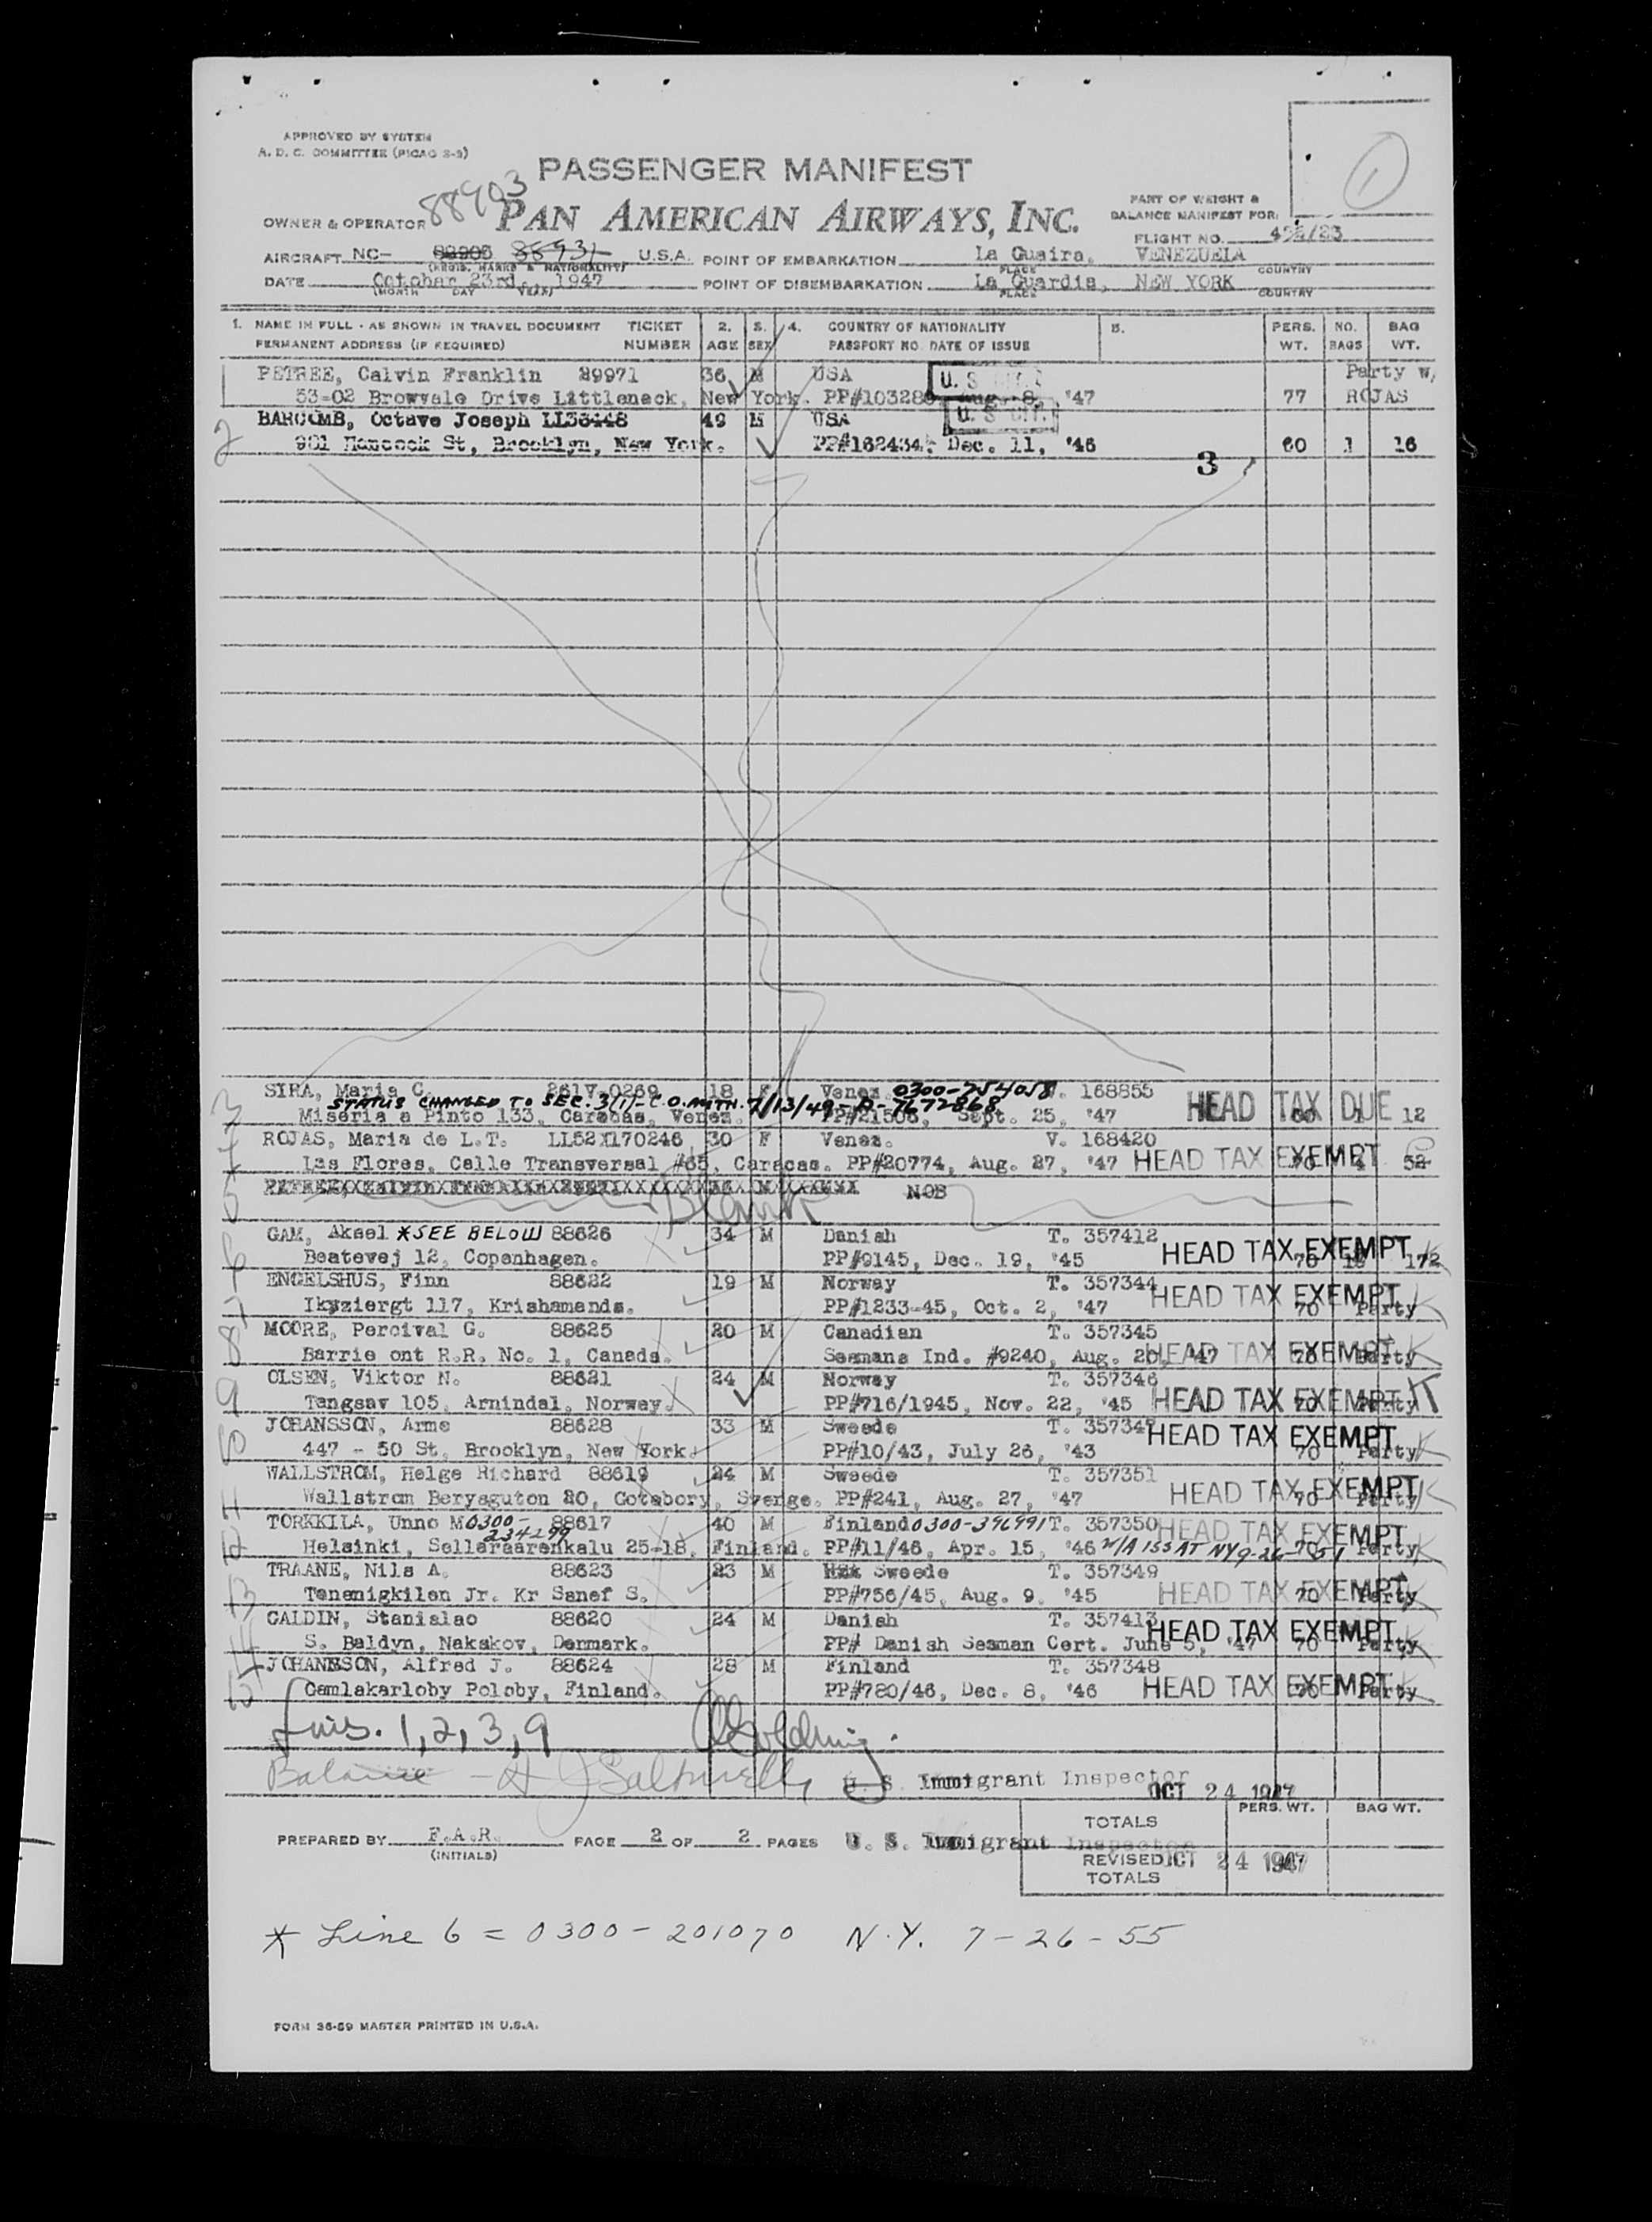 APPROVED BY SYSTEM
A. D. C. COMMITTEE (PICAO S-3)
1
PASSENGER MANIFEST
88903
OWNER & OPERATOR PAN AMERICAN AIRWAYS, INC.
PART OF WEIGHT &
BALANCE MANIFEST FOR:
FLIGHT NO. 452/23
AIRCRAFT NC- 88931 U.S.A. POINT OF EMBARKATION La Guaira, VENEZUELA
(REGIS. MARKS & NATIONALITY) PLACE COUNTRY
DATE October 23rd, 1947 POINT OF DISEMBARKATION La Guardia, NEW YORK
(MONTH DAY YEAR) PLACE COUNTRY
1. NAME IN FULL - AS SHOWN IN TRAVEL DOCUMENT TICKET 2. 3. 4. COUNTRY OF NATIONALITY 5. PERS. NO. BAG
PERMANENT ADDRESS (IF REQUIRED) NUMBER AGE SEX PASSPORT NO. DATE OF ISSUE WT. BAGS WT.
PETREE, Calvin Franklin 29971 36 M USA U. S. CIT. Party w/
53-02 Browvale Drive Littleneck, New York. Aug. 8, '47 77 ROJAS
BARCOMB, Octave Joseph LL36448 49 M USA U. S CIT.
2 901 Hancock St, Brooklyn, New York. PP#162434, Dec. 11, '46 60 1 16
3
SIRA, Maria C. 261V-0269 18 F Venez. 0300-754058 V. 168855
STATUS CHANGED TO SEC. 3(1)-C.O. AUTH. 7/13/49-A-7672868
3 Miseria a Pinto 133, Carabas, Venez. PP#21506, Sept. 25, '47 HEAD TAX DUE 60 1 12
ROJAS, Maria de L.T. LL52X170246 30 F Venez. V. 168420
4 Las Flores, Calle Transversal #65, Caracas. PP#20774, Aug. 27, '47 HEAD TAX EXEMPT 70 4 52
5 Blank NOB
GAM, Aksel *SEE BELOW 88626 34 M Danish T. 357412
6 Beatevej 12, Copenhagen. PP#9145, Dec. 19, '45 HEAD TAX EXEMPT 70 172
ENGELSHUS, Finn 88622 19 M Norway T. 357344
7 Ikyziergt 117, Krishamands. PP#1233-45, Oct. 2, '47 HEAD TAX EXEMPT 70 Party
MOORE, Percival G. 88625 20 M Canadian T. 357345
8 Barrie ont R.R. No. 1, Canada. Seamans Ind. #9240, Aug. 20, '47 HEAD TAX EXEMPT 70 Party
OLSEN, Viktor N. 88621 24 M Norway T. 357346
9 Tangsav 105, Arnindal, Norway. PP#716/1945, Nov. 22, '45 HEAD TAX EXEMPT 70 Party
JOHANSSON, Arme 88628 33 M Sweede T. 35734
10 447 - 50 St, Brooklyn, New York. PP#10/43, July 26, '43 HEAD TAX EXEMPT 70 Party
WALLSTROM, Helge Richard 88619 24 M Sweede T. 357351
11 Wallstrom Beryaguton 20, Gotabory, Sverge. PP#241, Aug. 27, '47 HEAD TAX EXEMPT 70 Party
TORKKILA, Unno M 0300-234299 88617 40 M Finland 0300-396991 T. 357350
12 Helsinki, Sellaraarenkalu 25-18, Finland. PP#11/46, Apr. 15, '46 N/A ISS AT NY 9-26-51 HEAD TAX EXEMPT 70 Party
TRAANE, Nils A. 88623 23 M Sweede T. 357349
13 Tenanigkilen Jr. Kr Sanef S. PP#756/45, Aug. 9, '45 HEAD TAX EXEMPT 70 Party
CALDIN, Stanislao 88620 24 M Danish T. 357413
14 S. Baldyn, Nakskov, Denmark. PP# Danish Seaman Cert. June 5, '47 HEAD TAX EXEMPT 70 Party
JOHANSSON, Alfred J. 88624 28 M Finland T. 357348
15 Gamlakarloby Poloby, Finland. PP#780/46, Dec. 8, '46 HEAD TAX EXEMPT 70 Party
Lines. 1, 2, 3, 9
Balance -
U. S. Immigrant Inspector
OCT 24 1947
PERS. WT. BAG WT.
TOTALS
PREPARED BY F.A.R. PAGE 2 OF 2 PAGES U. S. Immigrant Inspector
(INITIALS)
REVISED OCT 24 1947
TOTALS
* Line 6 = 0300-201070 N.Y. 7-26-55
FORM 36-59 MASTER PRINTED IN U.S.A.